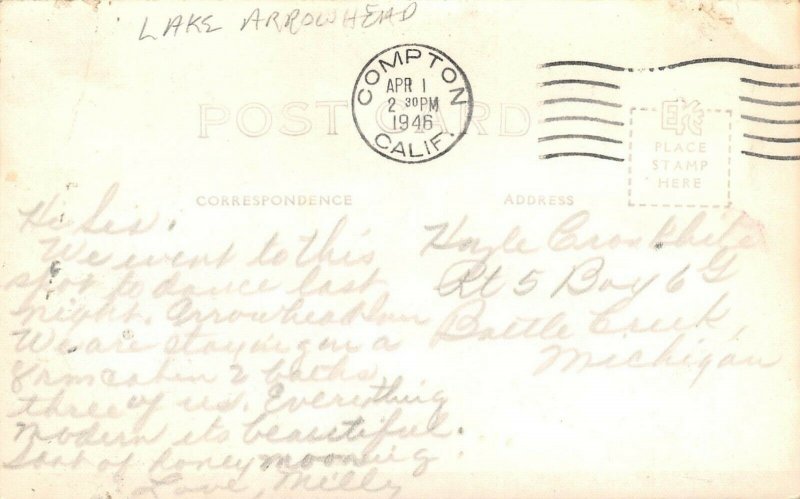 LAKE ARROWHEAD
COMPTON
APR 1
2 30 PM
1946
CALIF.
POST CARD
EKC
PLACE
STAMP
HERE
CORRESPONDENCE
ADDRESS
Hi Sis.
We went to this
spot to dance last
night. Arrowhead Inn
We are staying in a
8 rm cabin 2 baths
three of us. Everything
modern its beautiful.
Sort of honeymooning.
Love, Milly
Hazle Cronkhite
Rt 5 Box 6 G
Battle Creek,
Michigan